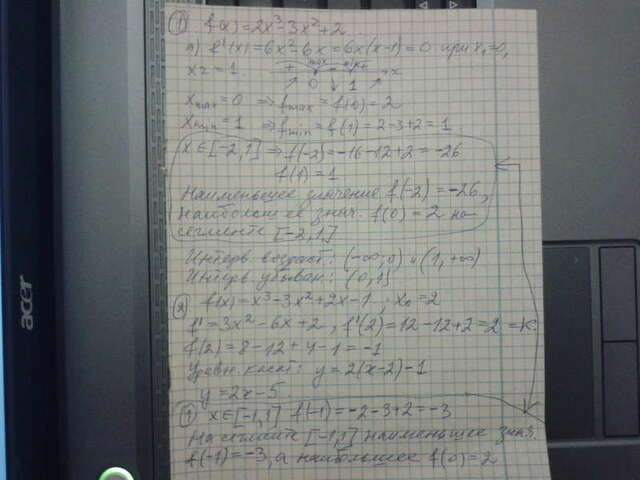 ① f(x)=2x³-3x²+2
а) f'(x)=6x²-6x=6x(x-1)=0 при x₁=0,
x₂=1. + max - min + x
0 1
xmax=0 ⇒ fmax=f(0)=2
xmin=1 ⇒ fmin=f(1)=2-3+2=1
x∈[-2,1] ⇒ f(-2)=-16-12+2=-26
f(1)=1
Наименьшее значение f(-2)=-26,
наибольшее знач. f(0)=2 на
сегменте [-2,1]
Интерв. возраст.: (-∞,0) и (1,+∞)
Интерв. убыван.: (0,1)
② f(x)=x³-3x²+2x-1, x₀=2
f'=3x²-6x+2, f'(2)=12-12+2=2=k
f(2)=8-12+4-1=-1
Уравн. касат.: y=2(x-2)-1
y=2x-5
① x∈[-1,1] f(-1)=-2-3+2=-3
На сегменте [-1,1] наименьшее знач.
f(-1)=-3, а наибольшее f(0)=2
acer